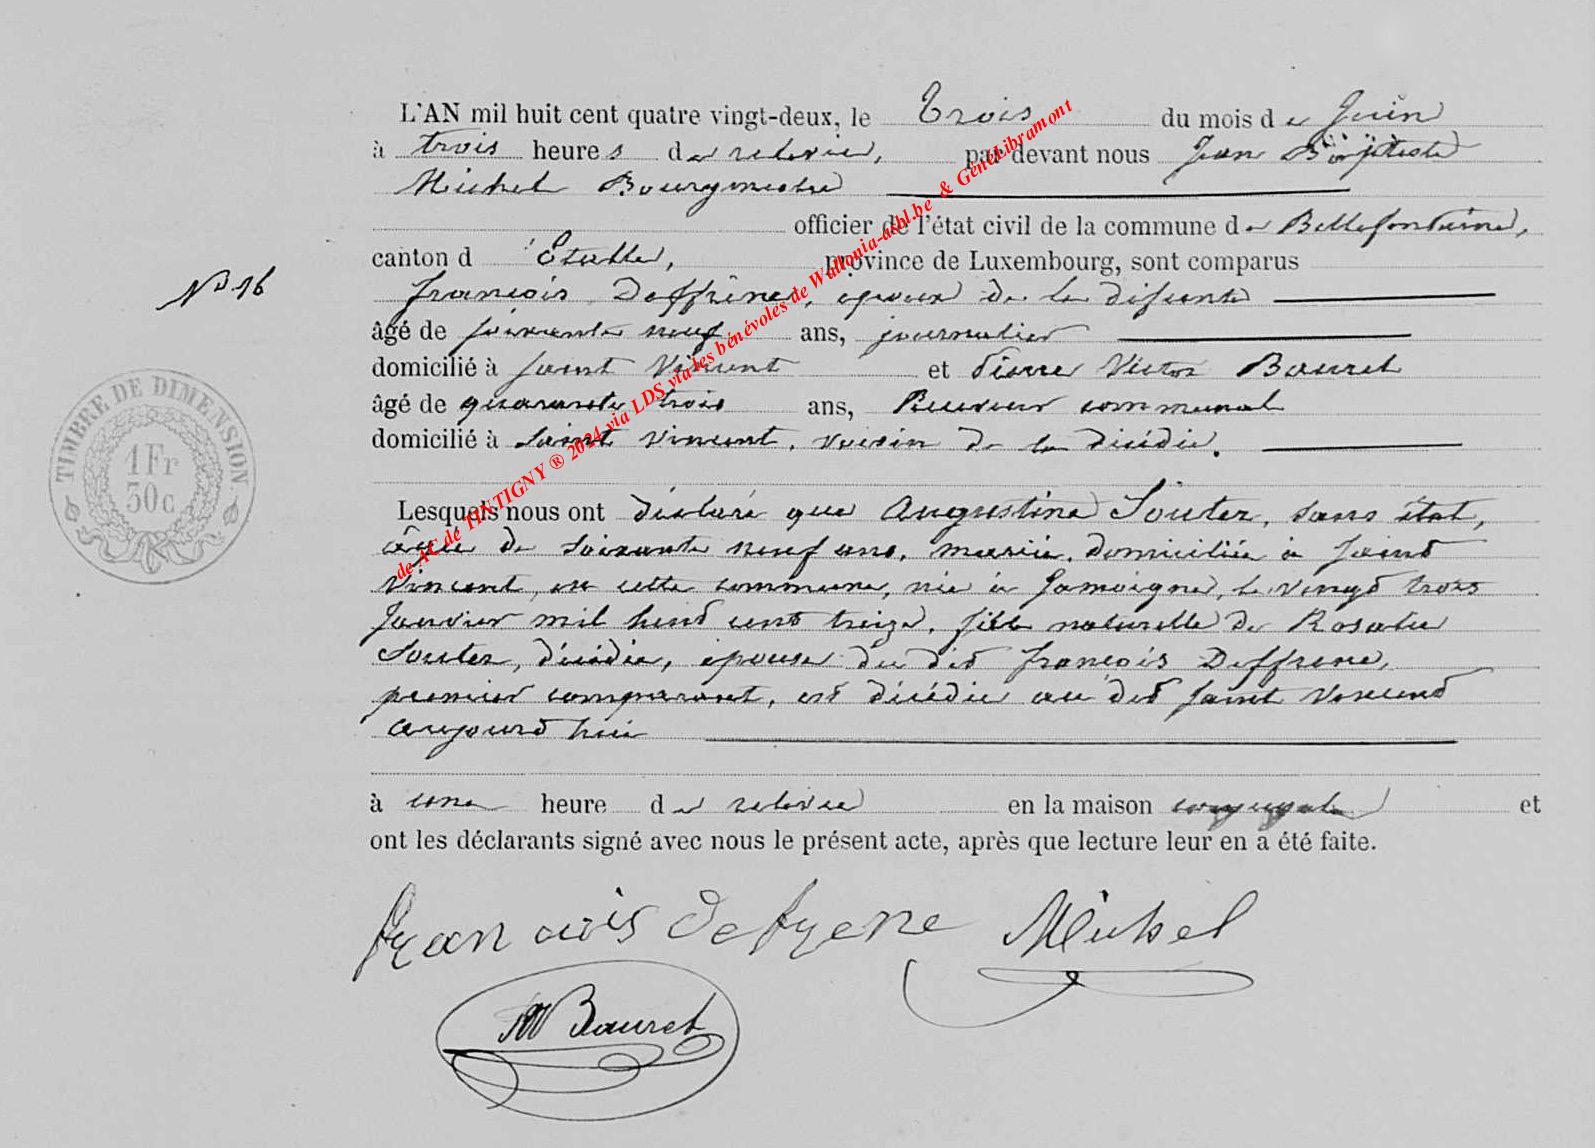 L'AN mil huit cent quatre vingt-deux, le Trois du mois de Juin
à trois heures de relevée, par devant nous Jean Baptiste
Michel Bourgmestre
officier de l'état civil de la commune de Bellefontaine,
canton d'Etalle, province de Luxembourg, sont comparus
N° 16
François Deffrêne, époux de la défunte
âgé de soixante neuf ans, journalier
domicilié à Saint Vincent et Pierre Victor Bauret
âgé de quarante trois ans, Receveur communal
domicilié à Saint Vincent, voisin de la décédée.
TIMBRE DE DIMENSION
1Fr
50c
Lesquels nous ont déclaré que Augustine Souter, sans état,
âgée de soixante neuf ans, mariée, domiciliée à Saint
Vincent, en cette commune, née à Jamoigne, le vingt trois
Janvier mil huit cent treize, fille naturelle de Rosalie
Souter, décédée, épouse du dit François Deffrene,
premier comparant, est décédée au dit Saint Vincent
aujourd'hui
à une heure de relevée en la maison conjugale et
ont les déclarants signé avec nous le présent acte, après que lecture leur en a été faite.
François Defrene Michel
Bauret
de AC de TINTIGNY ® 2024 via LDS via les bénévoles de Wallonia-asbl.be & GénéLibramont